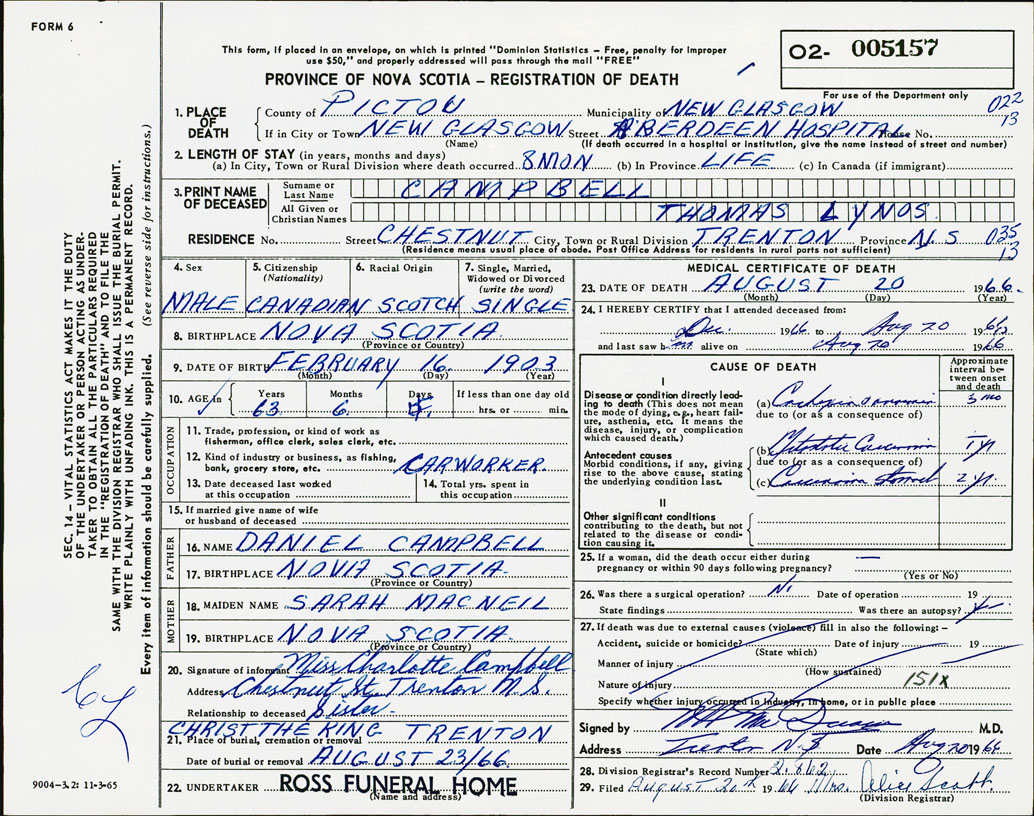 FORM 6
This form, if placed in an envelope, on which is printed "Dominion Statistics – Free, penalty for improper
use $50," and properly addressed will pass through the mail "FREE"
O2- 005157
For use of the Department only
PROVINCE OF NOVA SCOTIA – REGISTRATION OF DEATH
022
13
1. PLACE OF DEATH
County of PICTOU Municipality of NEW GLASGOW
If in City or Town NEW GLASGOW Street ABERDEEN HOSPITAL House No.
(Name) (If death occurred in a hospital or institution, give the name instead of street and number)
2. LENGTH OF STAY (in years, months and days)
(a) In City, Town or Rural Division where death occurred 8 MON (b) In Province LIFE (c) In Canada (if immigrant)
3. PRINT NAME OF DECEASED
Surname or Last Name CAMPBELL
All Given or Christian Names THOMAS LYNOS
RESIDENCE No. Street CHESTNUT City, Town or Rural Division TRENTON Province N.S
(Residence means usual place of abode. Post Office Address for residents in rural ports not sufficient)
035
13
4. Sex MALE
5. Citizenship (Nationality) CANADIAN
6. Racial Origin SCOTCH
7. Single, Married, Widowed or Divorced (write the word) SINGLE
8. BIRTHPLACE NOVA SCOTIA
(Province or Country)
9. DATE OF BIRTH FEBRUARY 16 1903
(Month) (Day) (Year)
10. AGE in Years 63 Months 6 Days 4 If less than one day old hrs. or min.
OCCUPATION
11. Trade, profession, or kind of work as
fisherman, office clerk, sales clerk, etc.
12. Kind of industry or business, as fishing,
bank, grocery store, etc. CARWORKER.
13. Date deceased last worked
at this occupation
14. Total yrs. spent in
this occupation
15. If married give name of wife
or husband of deceased
FATHER
16. NAME DANIEL CAMPBELL
17. BIRTHPLACE NOVIA SCOTIA
(Province or Country)
MOTHER
18. MAIDEN NAME SARAH MACNEIL
19. BIRTHPLACE NOVA SCOTIA
(Province or Country)
20. Signature of informant Miss Charlotte Campbell
Address Chestnut St. Trenton N.S.
Relationship to deceased Sister
CHRIST THE KING TRENTON
21. Place of burial, cremation or removal
Date of burial or removal AUGUST 23/66.
22. UNDERTAKER ROSS FUNERAL HOME
(Name and address)
MEDICAL CERTIFICATE OF DEATH
23. DATE OF DEATH AUGUST 20 1966.
(Month) (Day) (Year)
24. I HEREBY CERTIFY that I attended deceased from:
Dec. 1966 to Aug 20 1966
and last saw him alive on Aug 20 1966
CAUSE OF DEATH
Approximate interval between onset and death
I
Disease or condition directly leading to death (This does not mean
the mode of dying, e.g., heart failure, asthenia, etc. It means the
disease, injury, or complication
which caused death.)
(a) 3 mo
due to (or as a consequence of)
Antecedent causes
Morbid conditions, if any, giving
rise to the above cause, stating
the underlying condition last.
(b) 1 yr
due to (or as a consequence of)
(c) Carcinoma Stomach 2 yr.
II
Other significant conditions
contributing to the death, but not
related to the disease or condition causing it.
25. If a woman, did the death occur either during —
pregnancy or within 90 days following pregnancy?
(Yes or No)
26. Was there a surgical operation? Date of operation 19
State findings Was there an autopsy?
27. If death was due to external causes (violence) fill in also the following:–
Accident, suicide or homicide? Date of injury 19
(State which)
Manner of injury
(How sustained)
Nature of injury 151X
Specify whether injury occurred in industry, in home, or in public place
Signed by M.D.
Address Trenton N.S Date Aug 20 1966
28. Division Registrar's Record Number
29. Filed August 20th 1966 Mrs. Alice Scott.
(Division Registrar)
SEC. 14 – VITAL STATISTICS ACT MAKES IT THE DUTY
OF THE UNDERTAKER OR PERSON ACTING AS UNDER-
TAKER TO OBTAIN ALL THE PARTICULARS REQUIRED
IN THE "REGISTRATION OF DEATH" AND TO FILE THE
SAME WITH THE DIVISION REGISTRAR WHO SHALL ISSUE THE BURIAL PERMIT.
WRITE PLAINLY WITH UNFADING INK. THIS IS A PERMANENT RECORD.
Every item of information should be carefully supplied. (See reverse side for instructions.)
9004–3.2: 11-3-65